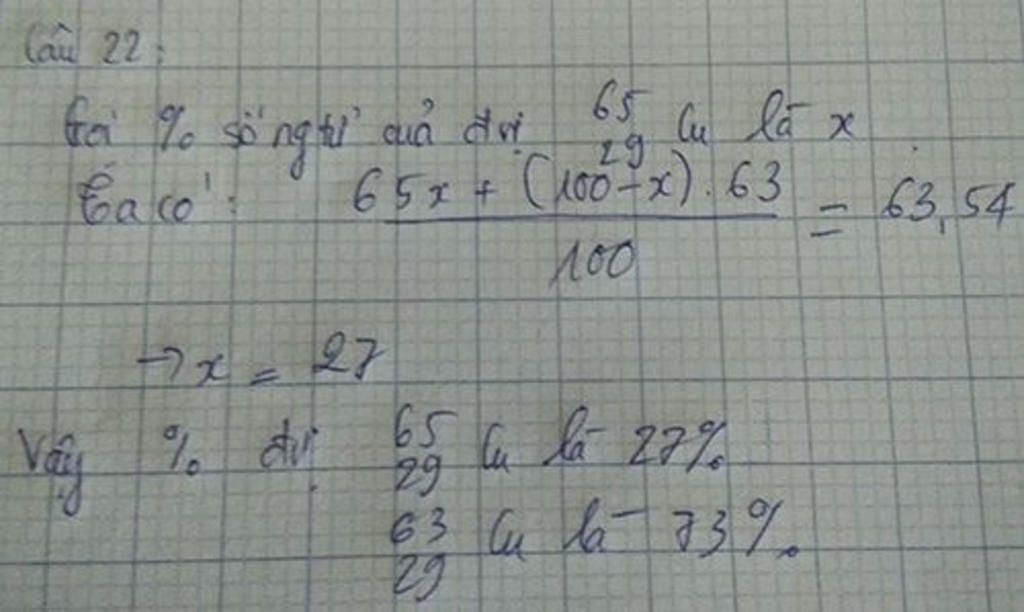 Câu 22:
Gọi % số ngtử của đvị ⁶⁵₂₉Cu là x
Ta có: (65x + (100-x).63)/100 = 63,54
→ x = 27
Vậy % đvị ⁶⁵₂₉Cu là 27%.
⁶³₂₉Cu là 73%.